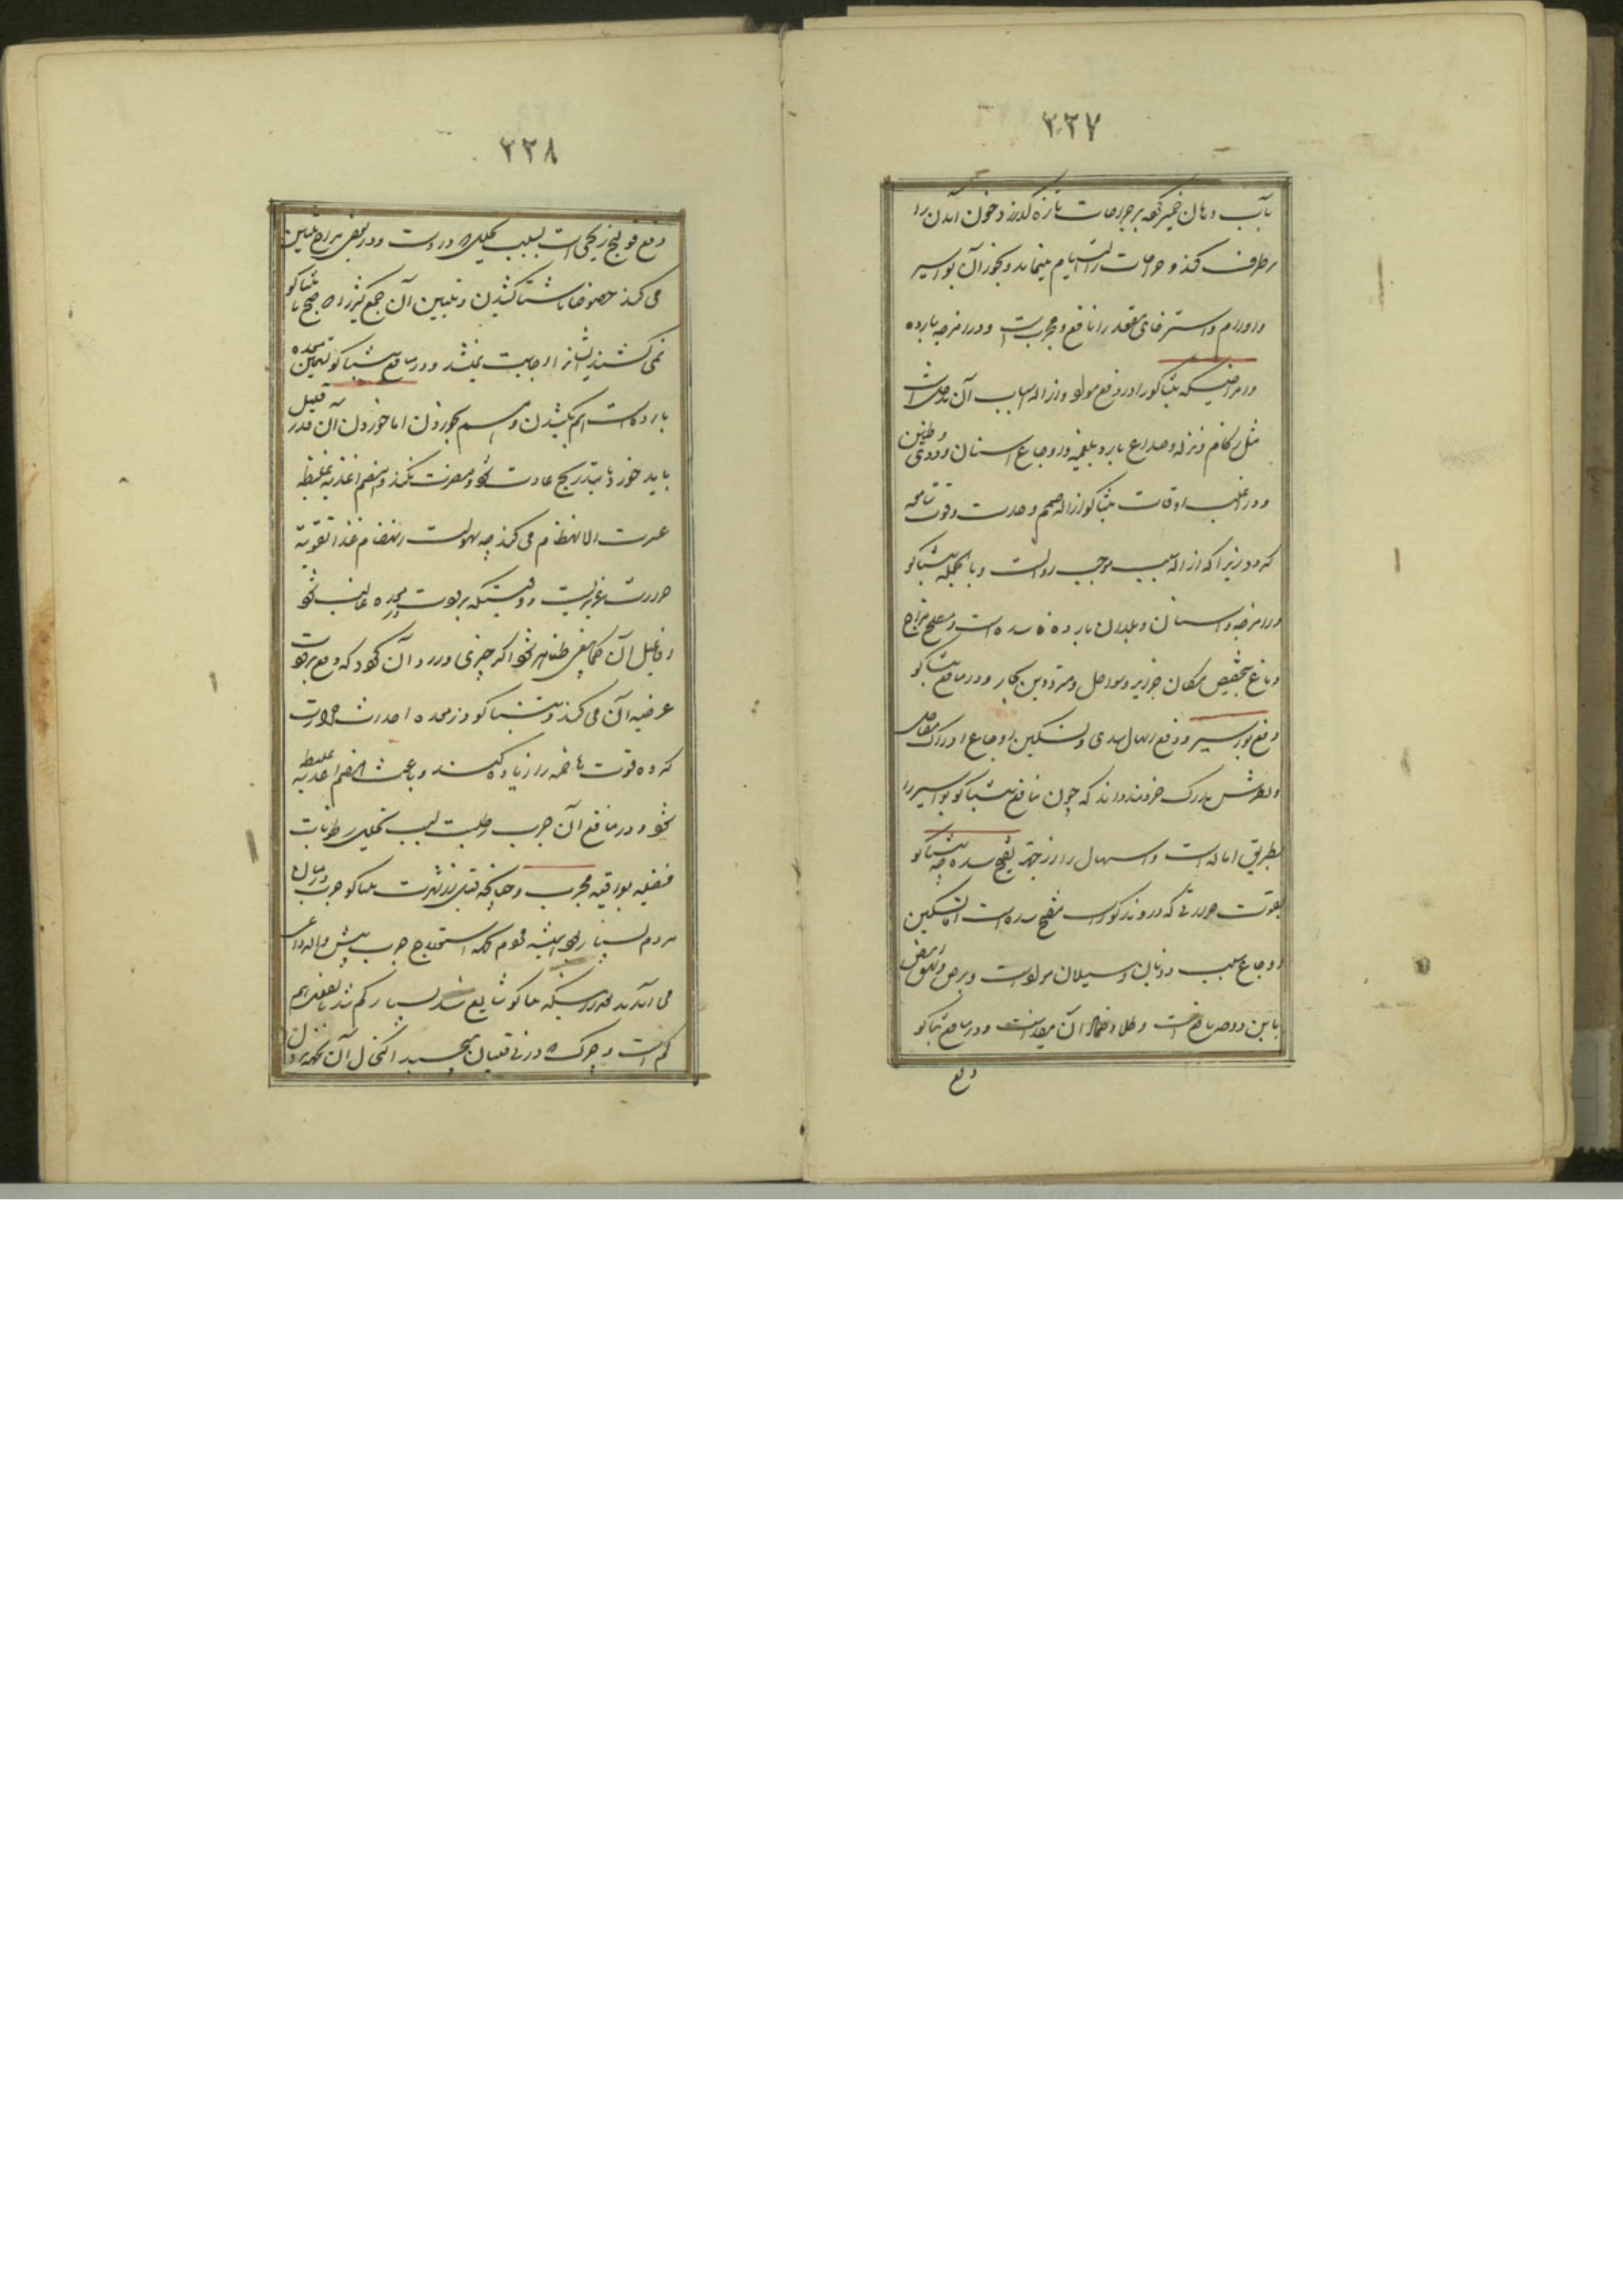 ۲۲۷
بآب دهان خمیر کرده بر جراحات تازه گذارند خون آمدن را
برطرف کند و جراحات را التیام مینماید و بخور آن بواسیر
و اورام و استرخای مقعد را نافع و مجرب است و در امزجه بارده
و امراضیکه تنباکو را در دفع مواد و ازاله اسباب آن مدخل است
مثل زکام و نزله و صداع بارد بلغمیه و اوجاع اسنان و دوی و طنین
و در اغلب اوقات تنباکو ازاله صمم و حدت و قوت سامعه
که دود زیرا که ازاله سبب موجب دواست و بالجمله تنباکو
در امزجه و اسنان و بلدان بارده فایده است و مصلح مزاج
دماغ بتخصیص سکان جزایر و سواحل و مترددین بحار و در منافع تنباکو
دفع بواسیر و دفع اسهال سدی و تسکین اوجاع ادراک مفاصل
و لطرش مدرک خردمنداند که چون منافع تنباکو بواسیر را
بطریق اماله است و اسهال را از جهة تفتیح سده چه تنباکو
بقوت حرارتی که در وی مذکور است مفتح سده است اما تسکین
اوجاع بسبب ذوبان و سیلان مواد است و برص و بهق ابیض
باین دو وجه نافع است و طلا و ضماد آن مفید است و در منافع تنباکو
دفع
۲۲۸
دفع قولنج ریحی است بسبب تحلیلی که در اوست و در بعضی مزاج تلیین
می کند خصوصا ناشتا کشیدن و تلیین آن جمع کثیر را که صبح تا تنباکو
نمی کشند ایشانرا اجابت نمیشد و در منافع تنباکو تسخین معده
بارده است هم بکشیدن و هم بخوردن اما خوردن آن قدر قلیل
باید خورد تا بتدریج عادت شود و مضرت نکند و هضم اغذیه غلیظه
عسرت الانهضام می کند چه سهولت انهضام غذا تقویة
حرارت غریزیست و وقتیکه برودت بر معده غالب شود
و فاعیل آن کما ینبغی ظاهر نشود اگر چیزی وارد آن شود که دفع برودت
عرضیه آن می کند و تنباکو در معده احداث حرارت
کرده قوت هاضمه را زیاده کند و باعث هضم اغذیه غلیظه
شود و در منافع آن جرب رطبست بسبب تحلیل رطوبات
فضلیه بورقیه مجرب و چنانچه قبل از شهرت تنباکو جرب در میان
مردم بسیار بود همیشه قوم حکه استعلاج جرب پیش
می آمدند و از وقتیکه تنباکو شایع شد بسیار کم شد بالفعل هم
کم است و چرک که در نی قلیان میچسبد اکتحال آن